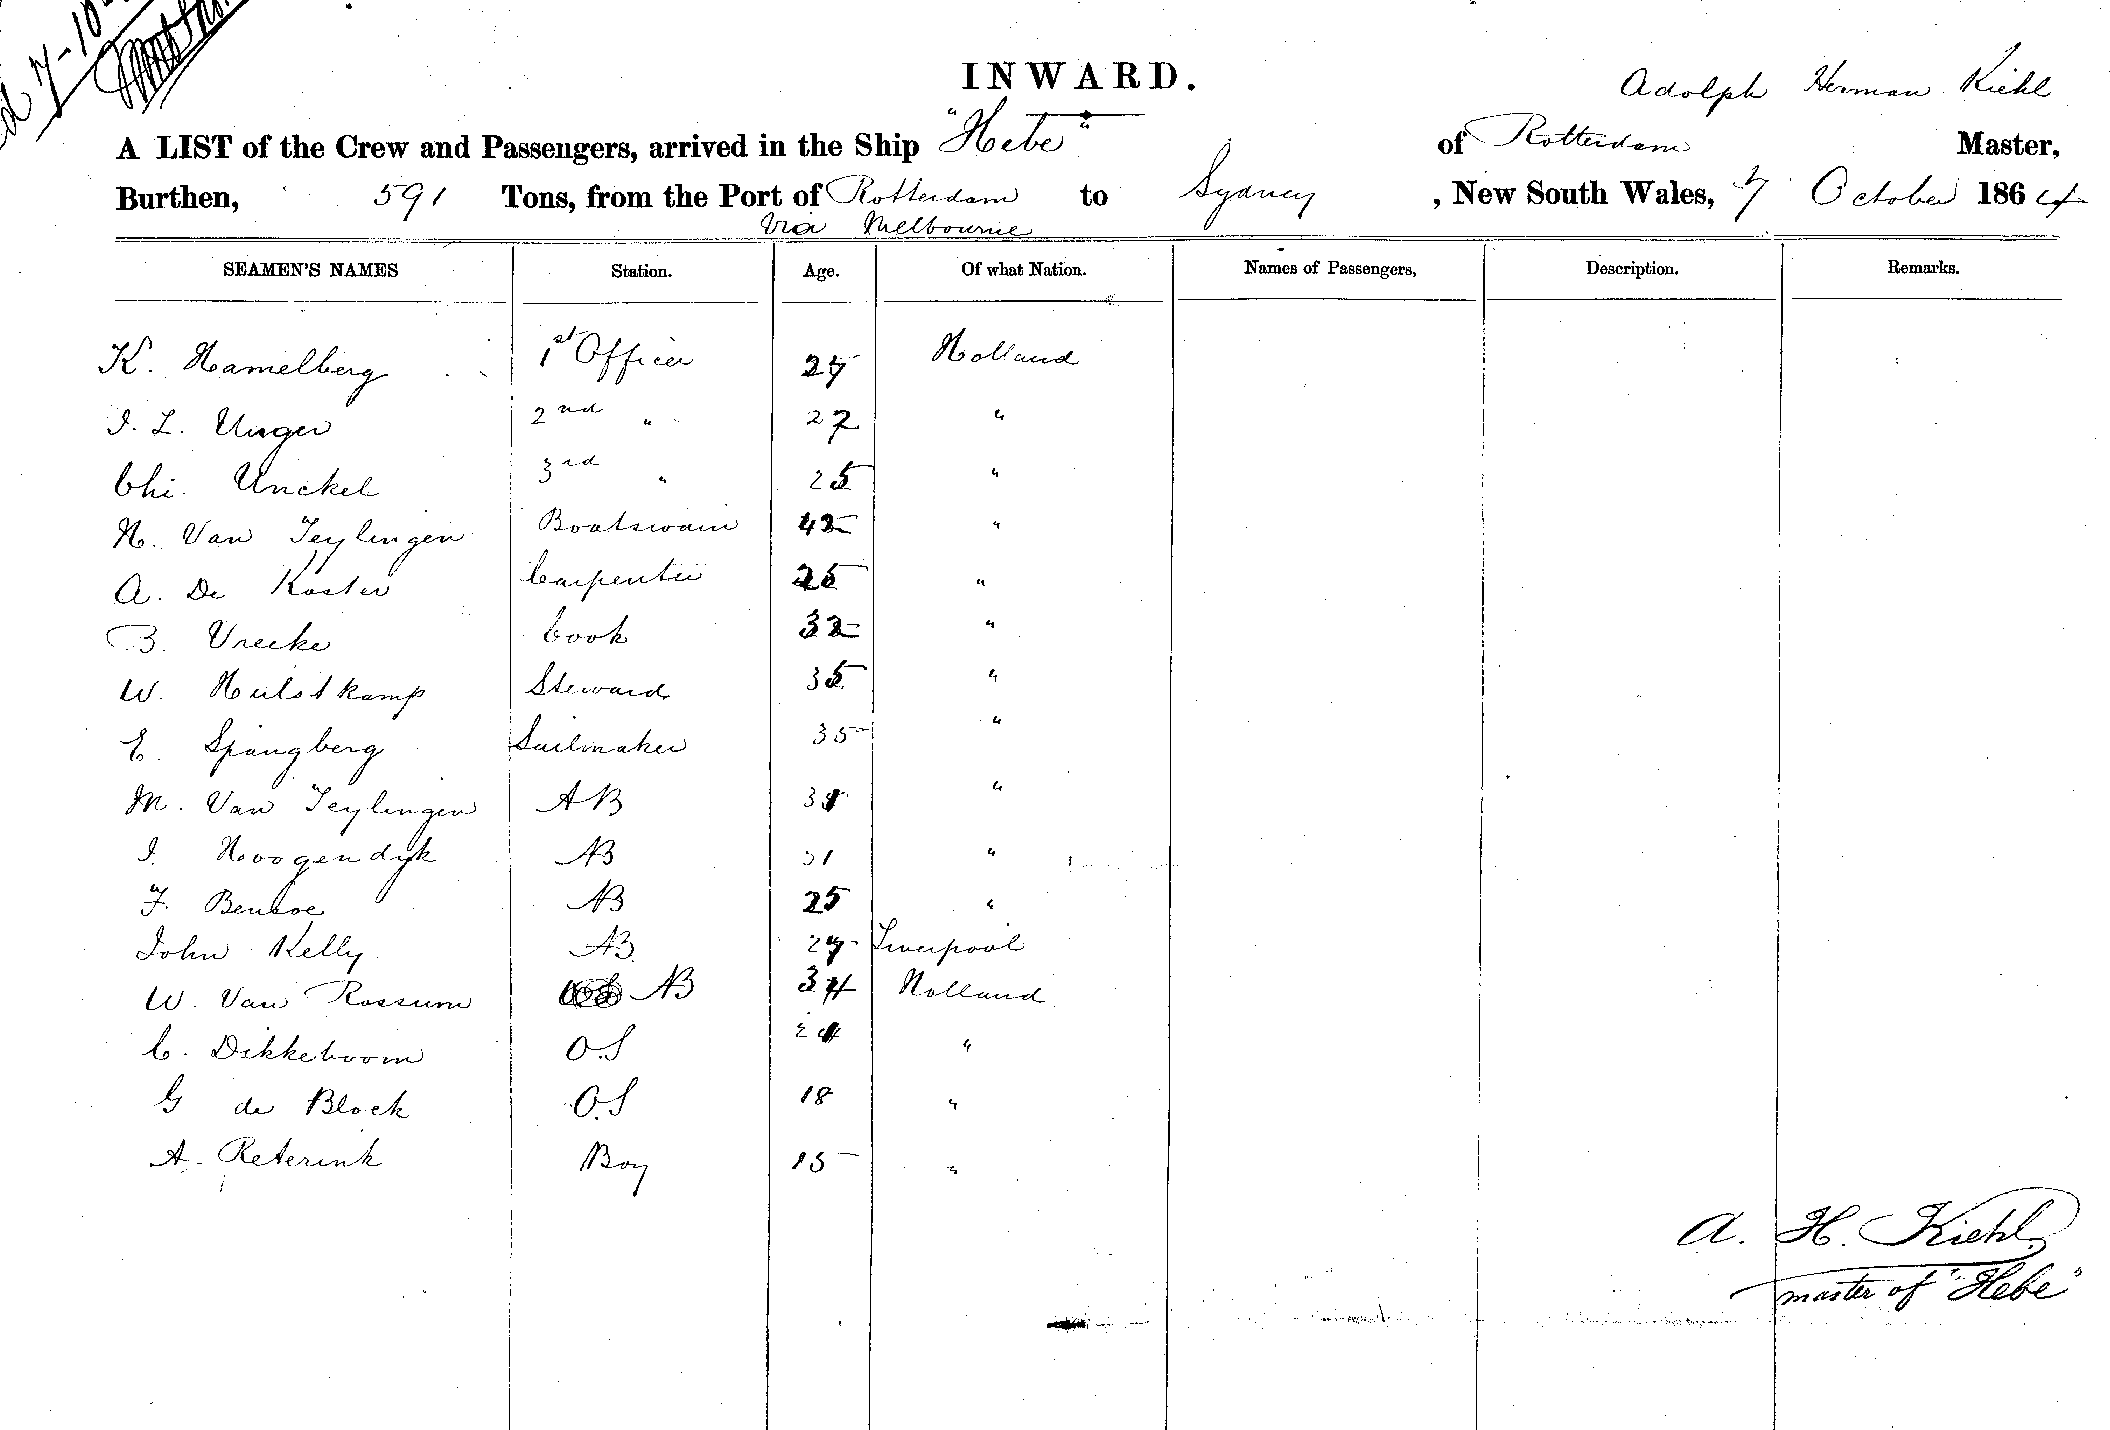 d 7-10
INWARD.
Adolph Herman Kiehl
A LIST of the Crew and Passengers, arrived in the Ship "Hebe" of Rotterdam Master,
Burthen, 591 Tons, from the Port of Rotterdam to Sydney, New South Wales, 7 October 1864
Via Melbourne
SEAMEN'S NAMES Station. Age. Of what Nation. Names of Passengers, Description. Remarks.
K. Hamelberg 1st Officer 27 Holland
I. L. Unger 2nd " 27 "
Chi. Unckel 3rd " 25 "
H. Van Teylingen Boatswain 42 "
A. De Koster Carpenter 25 "
B. Vrecke Cook 32 "
W. Hulstkamp Steward 35 "
E. Spangberg Sailmaker 35 "
M. Van Teylingen AB "
I. Hoogendyk AB 31 "
F. AB 25 "
John Kelly AB 27 Liverpool
W. Van Rossum AB 34 Holland
C. Dikkeboom O.S "
G de Block O.S 18 "
A. Reterink Boy 15 "
A. H. Kiehl
master of "Hebe"